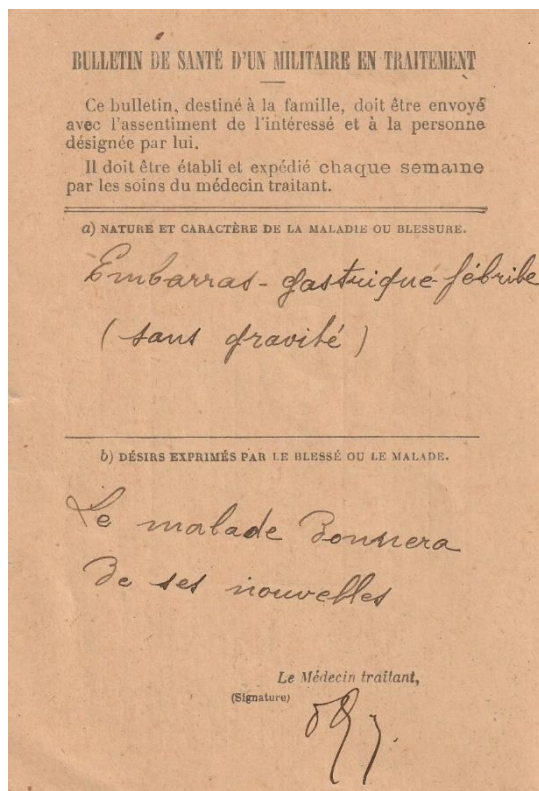 BULLETIN DE SANTÉ D'UN MILITAIRE EN TRAITEMENT
Ce bulletin, destiné à la famille, doit être envoyé
avec l'assentiment de l'intéressé et à la personne
désignée par lui.
Il doit être établi et expédié chaque semaine
par les soins du médecin traitant.
a) NATURE ET CARACTÈRE DE LA MALADIE OU BLESSURE.
Embarras-gastrique fébrile
(sans gravité)
b) DÉSIRS EXPRIMÉS PAR LE BLESSÉ OU LE MALADE.
Le malade donnera
de ses nouvelles
Le Médecin traitant,
(Signature)